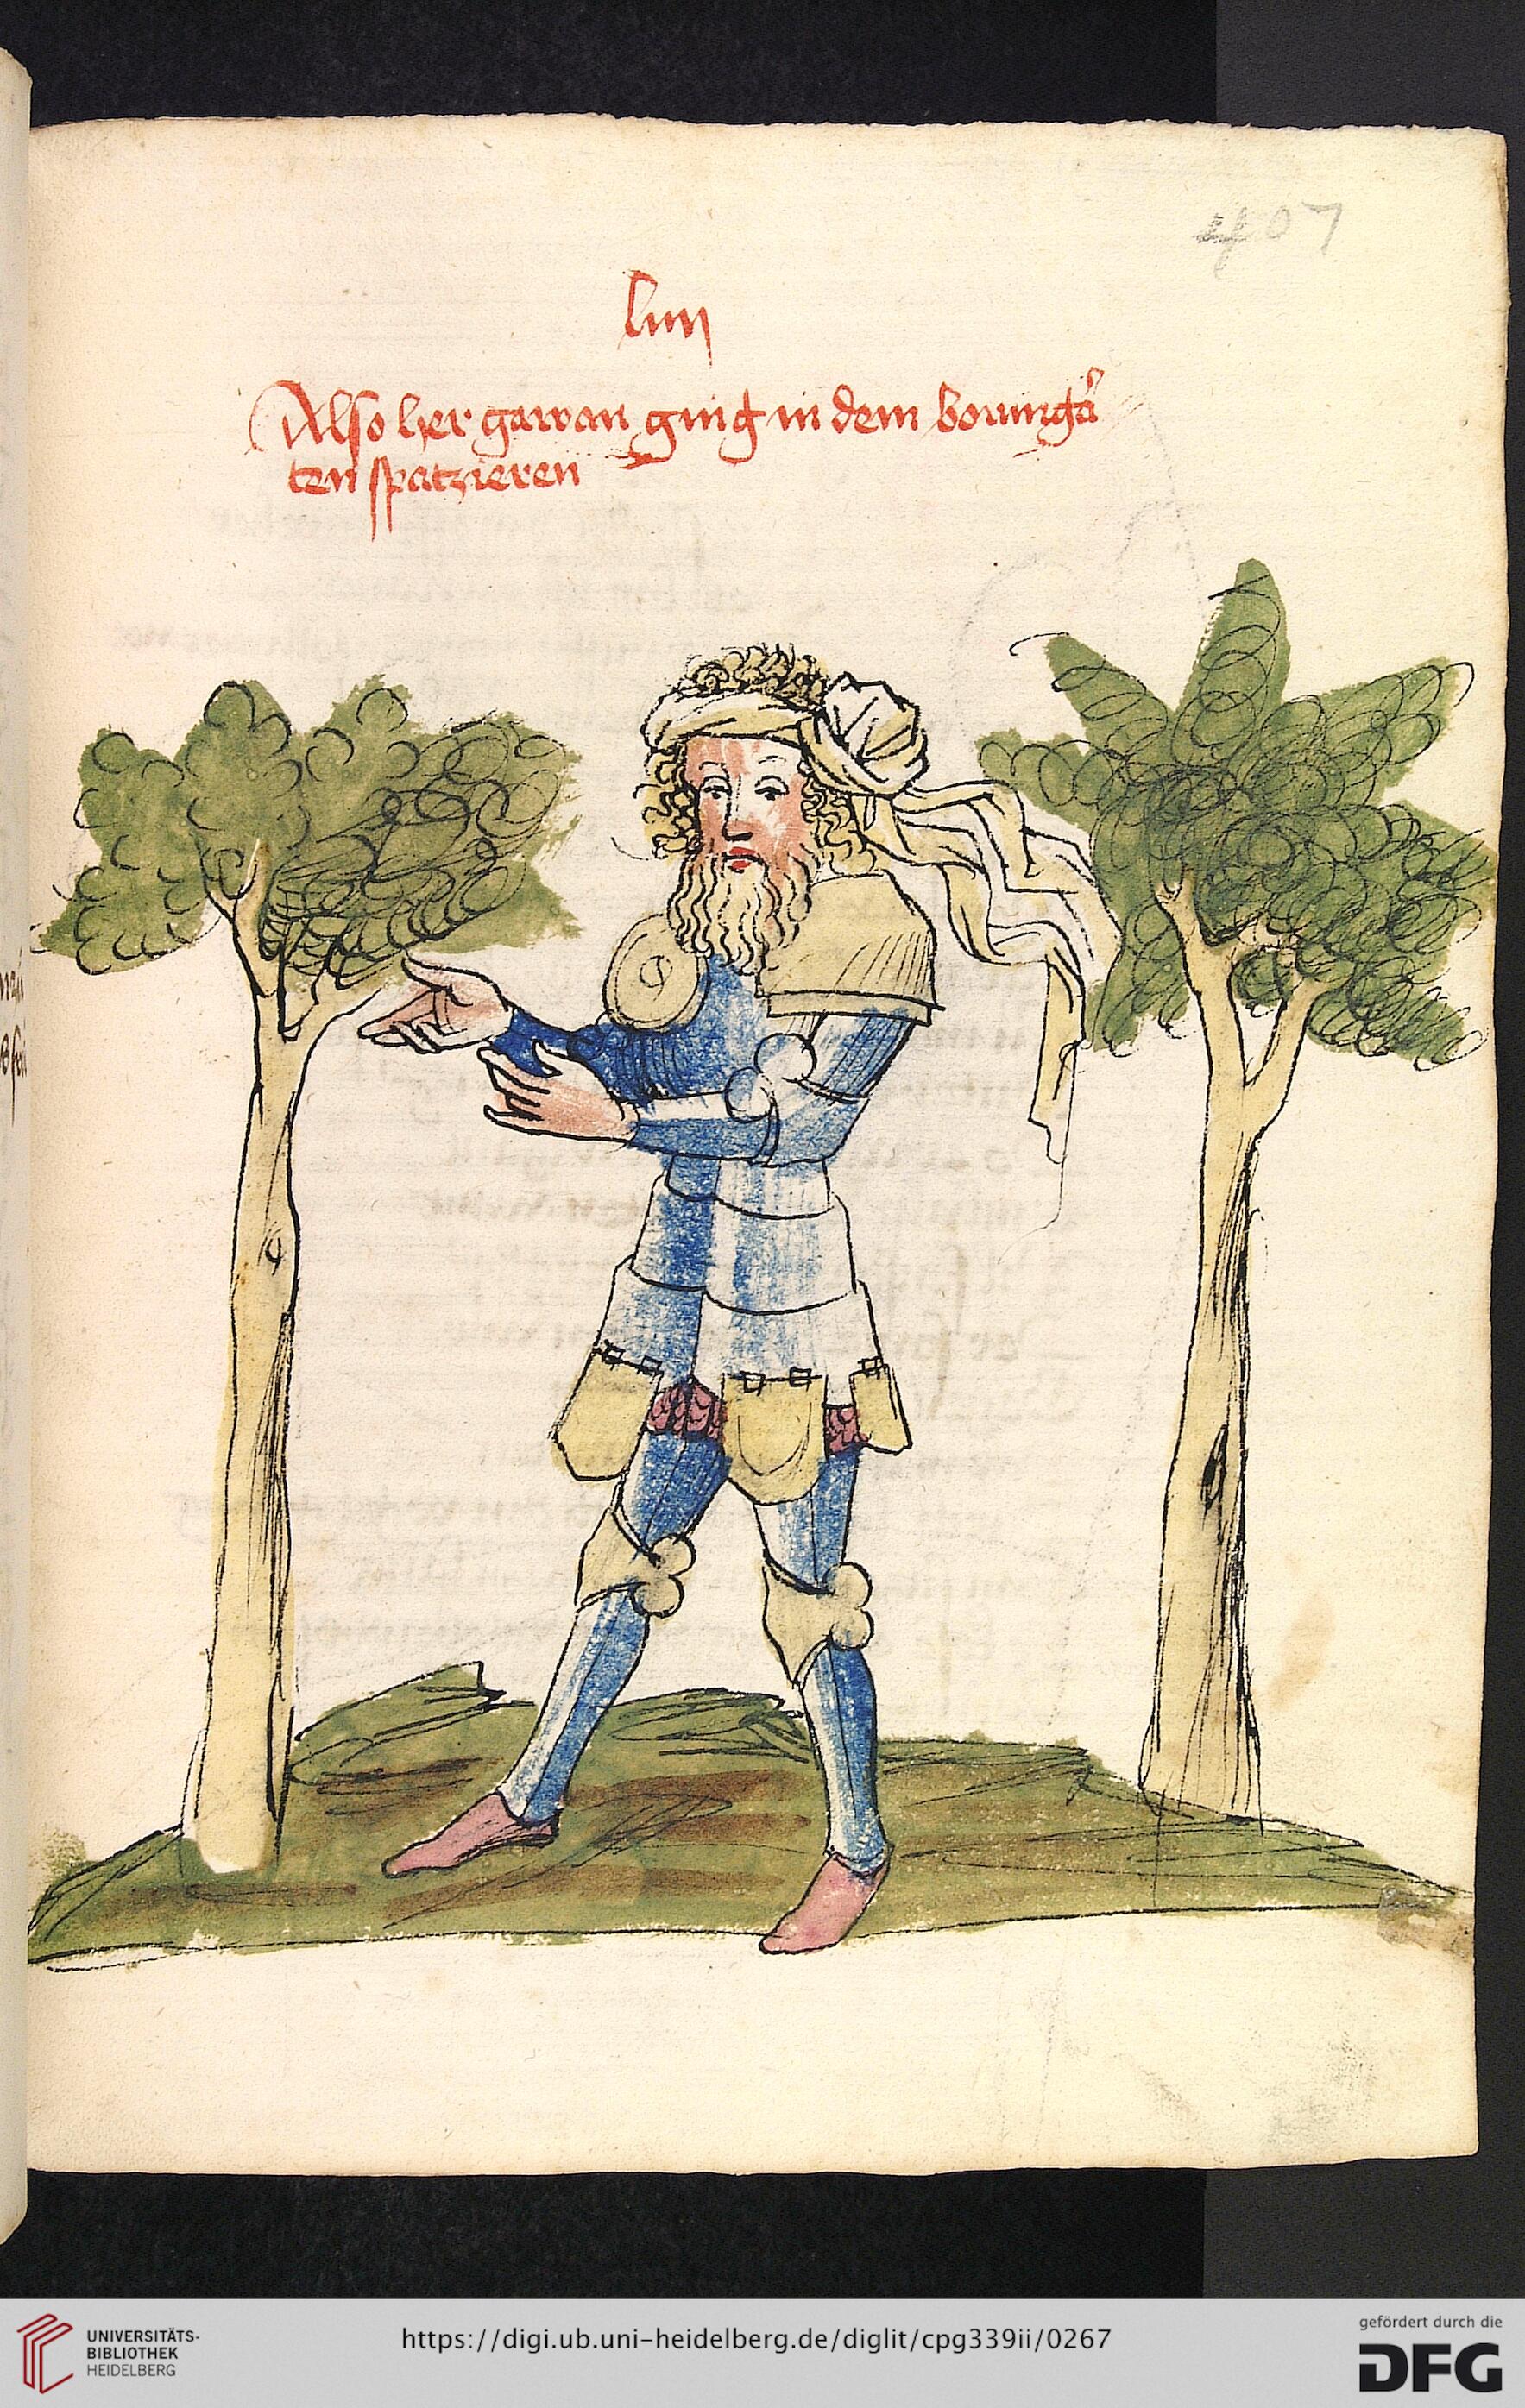 407
liiij
Also her gawan ging in dem boumgar
ten spatzieren
UNIVERSITÄTS-
BIBLIOTHEK
HEIDELBERG
https://digi.ub.uni-heidelberg.de/diglit/cpg339ii/0267
gefördert durch die
DFG